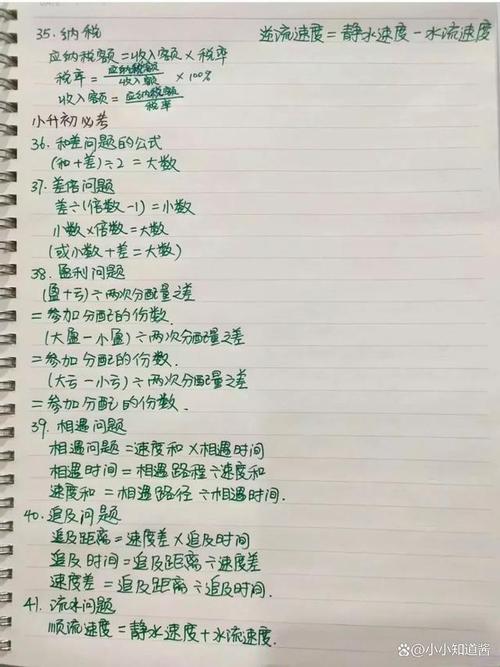 35. 纳税
应纳税额=收入额×税率
税率=应纳税额/收入额×100%
收入额=应纳税额/税率
小升初必考
36. 和差问题的公式
(和+差)÷2=大数
37. 差倍问题
差÷(倍数-1)=小数
小数×倍数=大数
(或小数+差=大数)
38. 盈利问题
(盈+亏)÷两次分配量之差
=参加分配的份数.
(大盈-小盈)÷两次分配量之差
=参加分配的份数.
(大亏-小亏)÷两次分配量之差
=参加分配的份数.
39. 相遇问题
相遇问题=速度和×相遇时间
相遇时间=相遇路程÷速度和
速度和=相遇路径÷相遇时间.
40. 追及问题
追及距离=速度差×追及时间
追及时间=追及距离÷速度差
速度差=追及距离÷追及时间.
41. 流水问题
顺流速度=静水速度+水流速度.
逆流速度=静水速度-水流速度
@小小知道酱